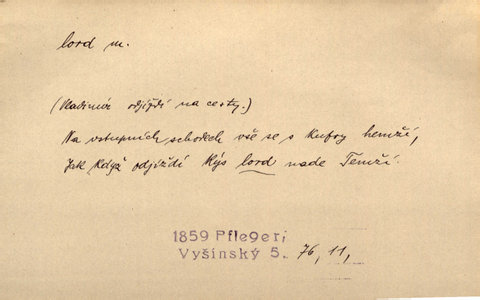 lord m.
(Vladimír odjíždí na cesty.)
Na vstupních schodech vše se s kufry hemží,
jak když odjíždí kýs lord nade Temží.
1859 Pfleger,
Vyšínský 5. 76, 11,